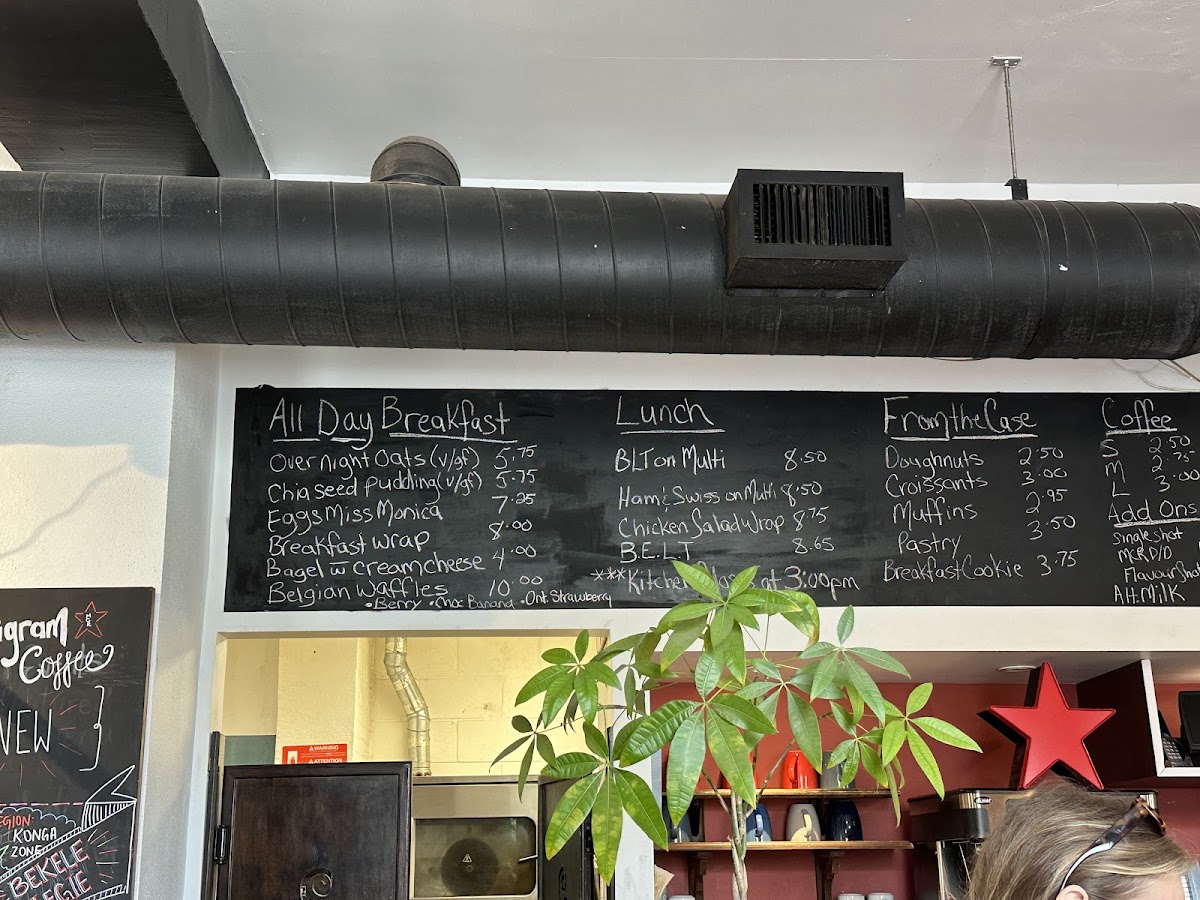 All Day Breakfast
Overnight Oats (v/gf) 5.75
Chia Seed Pudding (v/gf) 5.75
Eggs Miss Monica 7.25
Breakfast Wrap 8.00
Bagel w Cream cheese 4.00
Belgian Waffles 10.00
• Berry • Choc Banana • Ont. Strawberry
Lunch
BLT on Multi 8.50
Ham & Swiss on Multi 8.50
Chicken Salad Wrap 8.75
B.E.L.T 8.65
*** Kitchen at 3:00pm
From the Case
Doughnuts 2.50
Croissants 3.00
Muffins 2.95
Pastry 3.50
Breakfast Cookie 3.75
Coffee
S 2.50
M 2.75
L 3.00
Add Ons
Single Shot
Flavour Shot
Alt. Milk
Coffee
NEW
KONGA
ZONE
BEKELE
WARNING
ATTENTION